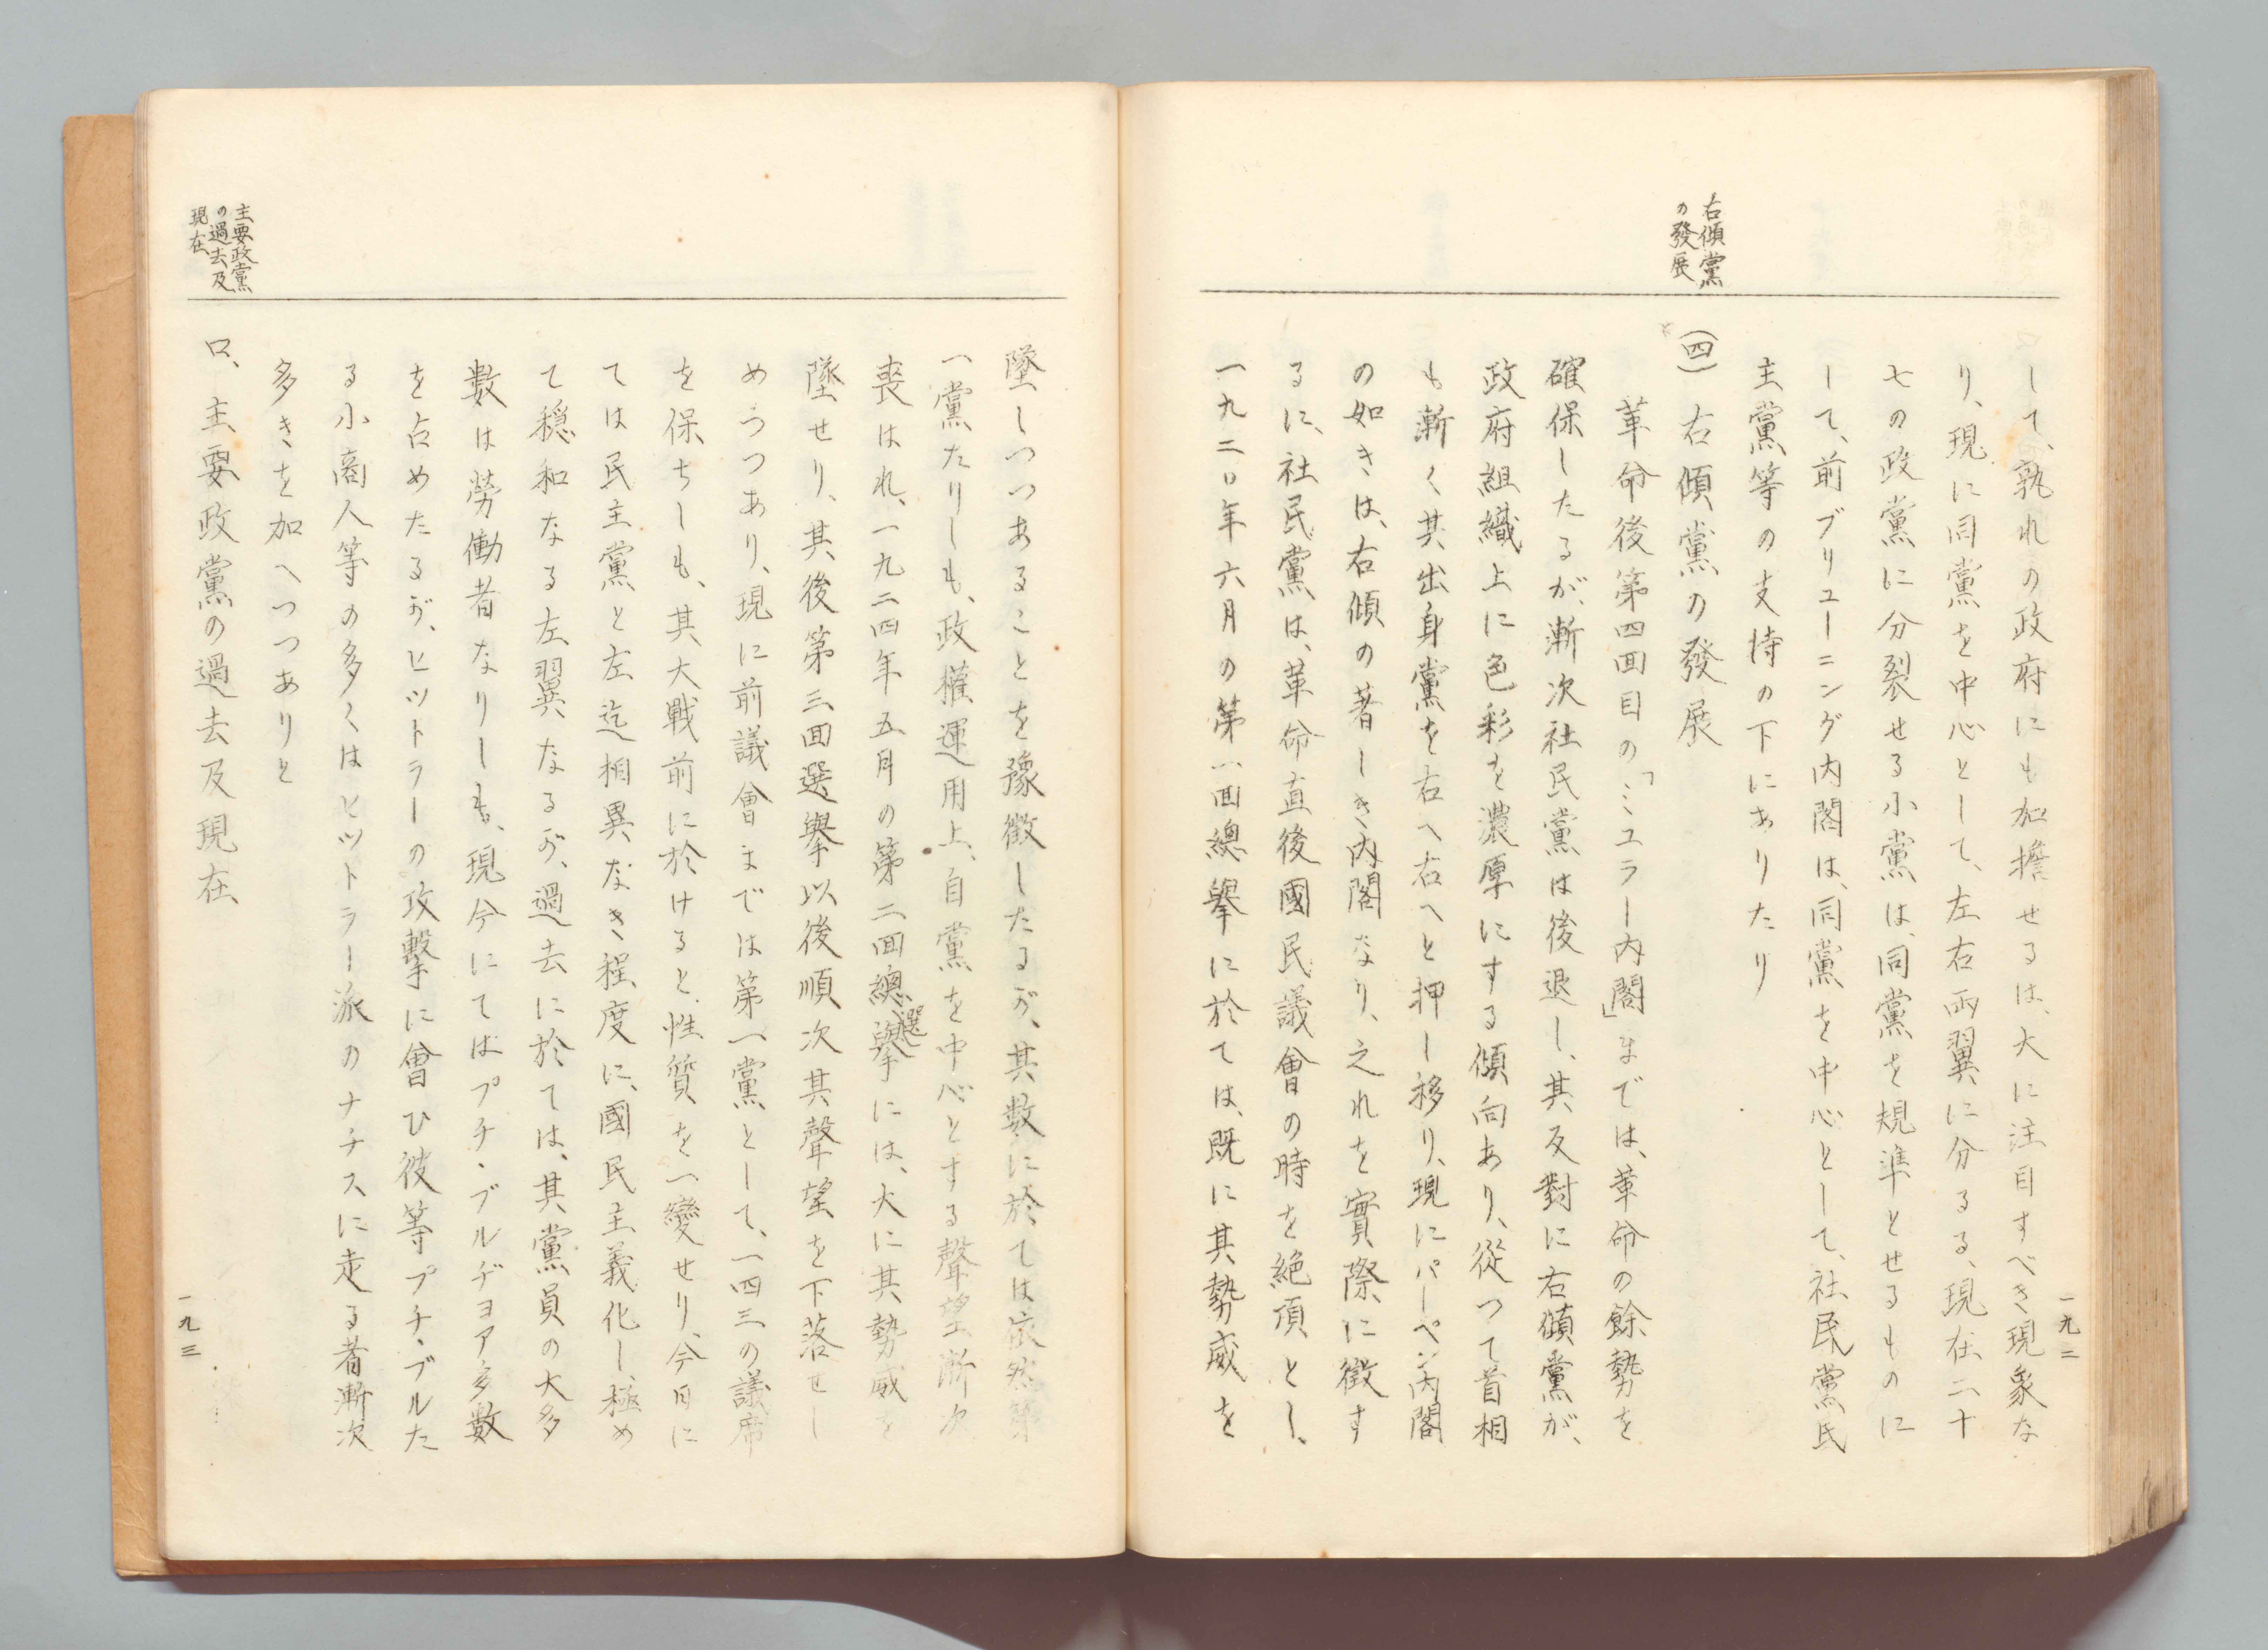 一九二
して、孰れの政府にも加擔せるは、大に注目すべき現象な
り、現に同黨を中心として、左右両翼に分るる、現在二十
七の政黨に分裂せる小黨は、同黨を規準とせるものに
して、前ブリューニング内閣は、同黨を中心として、社民黨民
主黨等の支持の下にありたり
右傾黨
の發展
(四) 右傾黨の發展
革命後第四回目の「ミユラー内閣」までは、革命の餘勢を
確保したるが、漸次社民黨は後退し、其反對に右傾黨が、
政府組織上に色彩を濃厚にする傾向あり、從つて首相
も漸く其出身黨を右へ右へと押し移り、現にパーペン内閣
の如きは、右傾の著しき内閣なり、之れを實際に徴す
るに、社民黨は、革命直後國民議會の時を絶頂とし、
一九二〇年六月の第一回總擧に於ては、既に其勢威を
墜しつつあることを豫徴したるが、其数に於ては依然第
一黨たりしも、政權運用上、自黨を中心とする聲望漸次
喪はれ、一九二四年五月の第二回總選擧には、大に其勢威を
墜せり、其後第三回選擧以後順次其聲望を下落せし
めつつあり、現に前議會までは第一黨として、一四三の議席
を保ちしも、其大戰前に於けると、性質を一變せり、今日に
ては民主黨と左迄相異なき程度に、國民主義化し、極め
て穏和なる左翼なるが、過去に於ては、其黨員の大多
数は勞働者なりしも、現今にてはプチ・ブルヂヨア多數
を占めたるが、ヒツトラーの攻擊に會ひ彼等プチ・ブルた
る小商人等の多くはヒツトラー派のナチスに走る者漸次
多きを加へつつありと
主要政黨
の過去及
現在
口、主要政黨の過去及現在
一九三